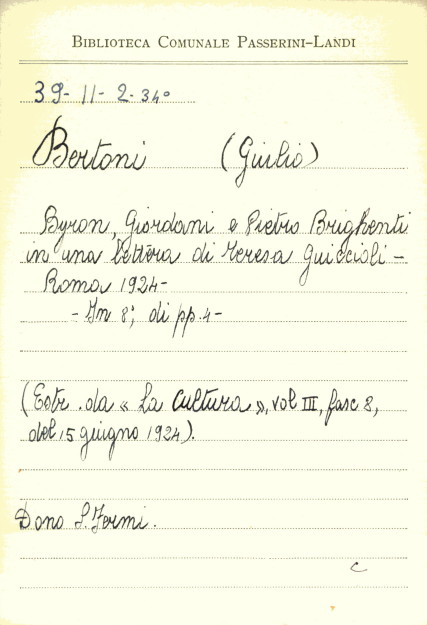 BIBLIOTECA COMUNALE PASSERINI-LANDI
39-11-2-34°
Bertoni (Giulio)
Byron, Giordani e Pietro Brighenti
in una lettera di Teresa Guiccioli -
Roma 1924-
- In 8°; di pp. 4-
(Estr. da « La Cultura », vol III, fasc 8,
del 15 giugno 1924).
Dono S. Fermi.
c